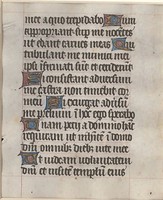 mee a quo trepidabo Dum
appropiant sup me nocētes
ut edant carnes meas Qui
tribulant me inimici mei
ipsi infirmati sūt et ceciderūt
Si consistant adversum
me castra non timebit cor
meū Si exurgat adversū
me prelium ī hoc ego sperabo
Unam petii a domino hanc
requiram ut inhabitem ī domo
domini omnibus diebus vite mee
Ut videam voluntatem
domini et visitē templum eius